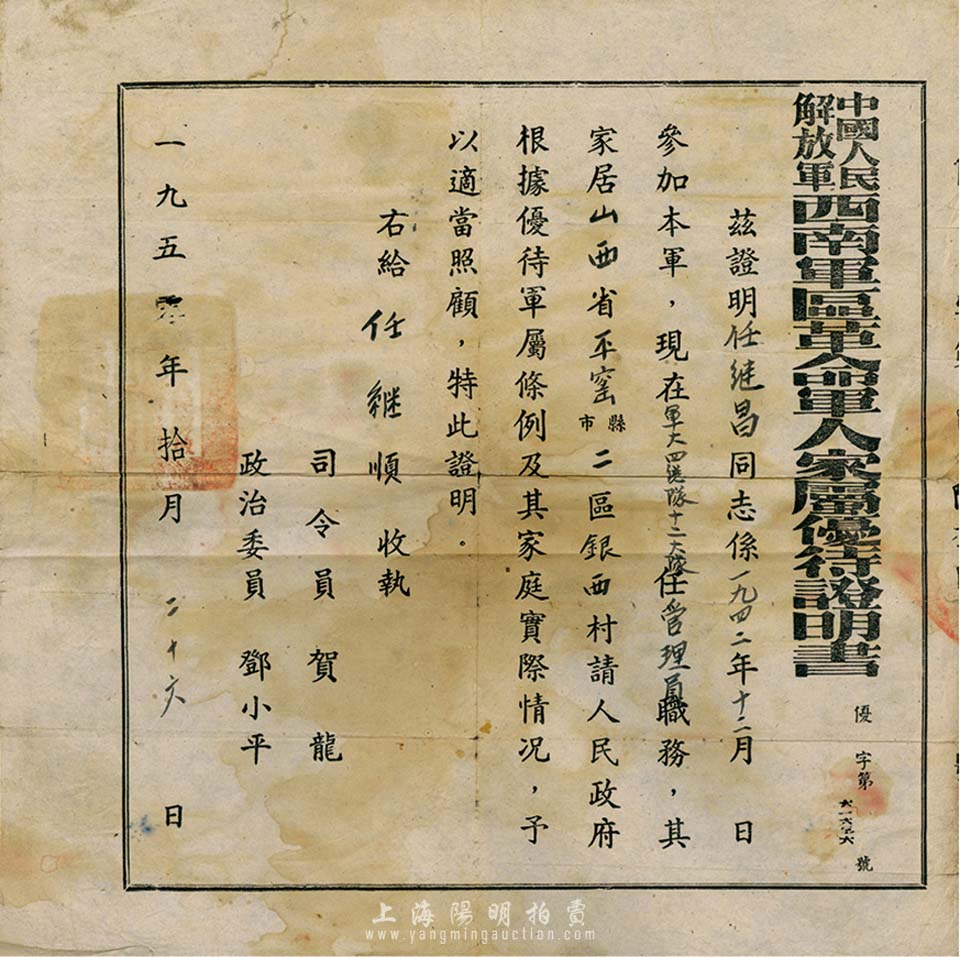 中國人民解放軍西南軍區革命軍人家屬優待證明書
優字第六一六五六號
茲證明任继昌同志係一九四二年十二月 日
參加本軍，現在軍大四總隊十二大隊任管理員職務，其
家居山西省平窑縣市二區銀西村請人民政府
根據優待軍屬條例及其家庭實際情況，予
以適當照顧，特此證明。
右給任繼順收執
司令員 賀龍
政治委員 鄧小平
一九五零年拾月二十六日
上海陽明拍賣
www.yangmingauction.com